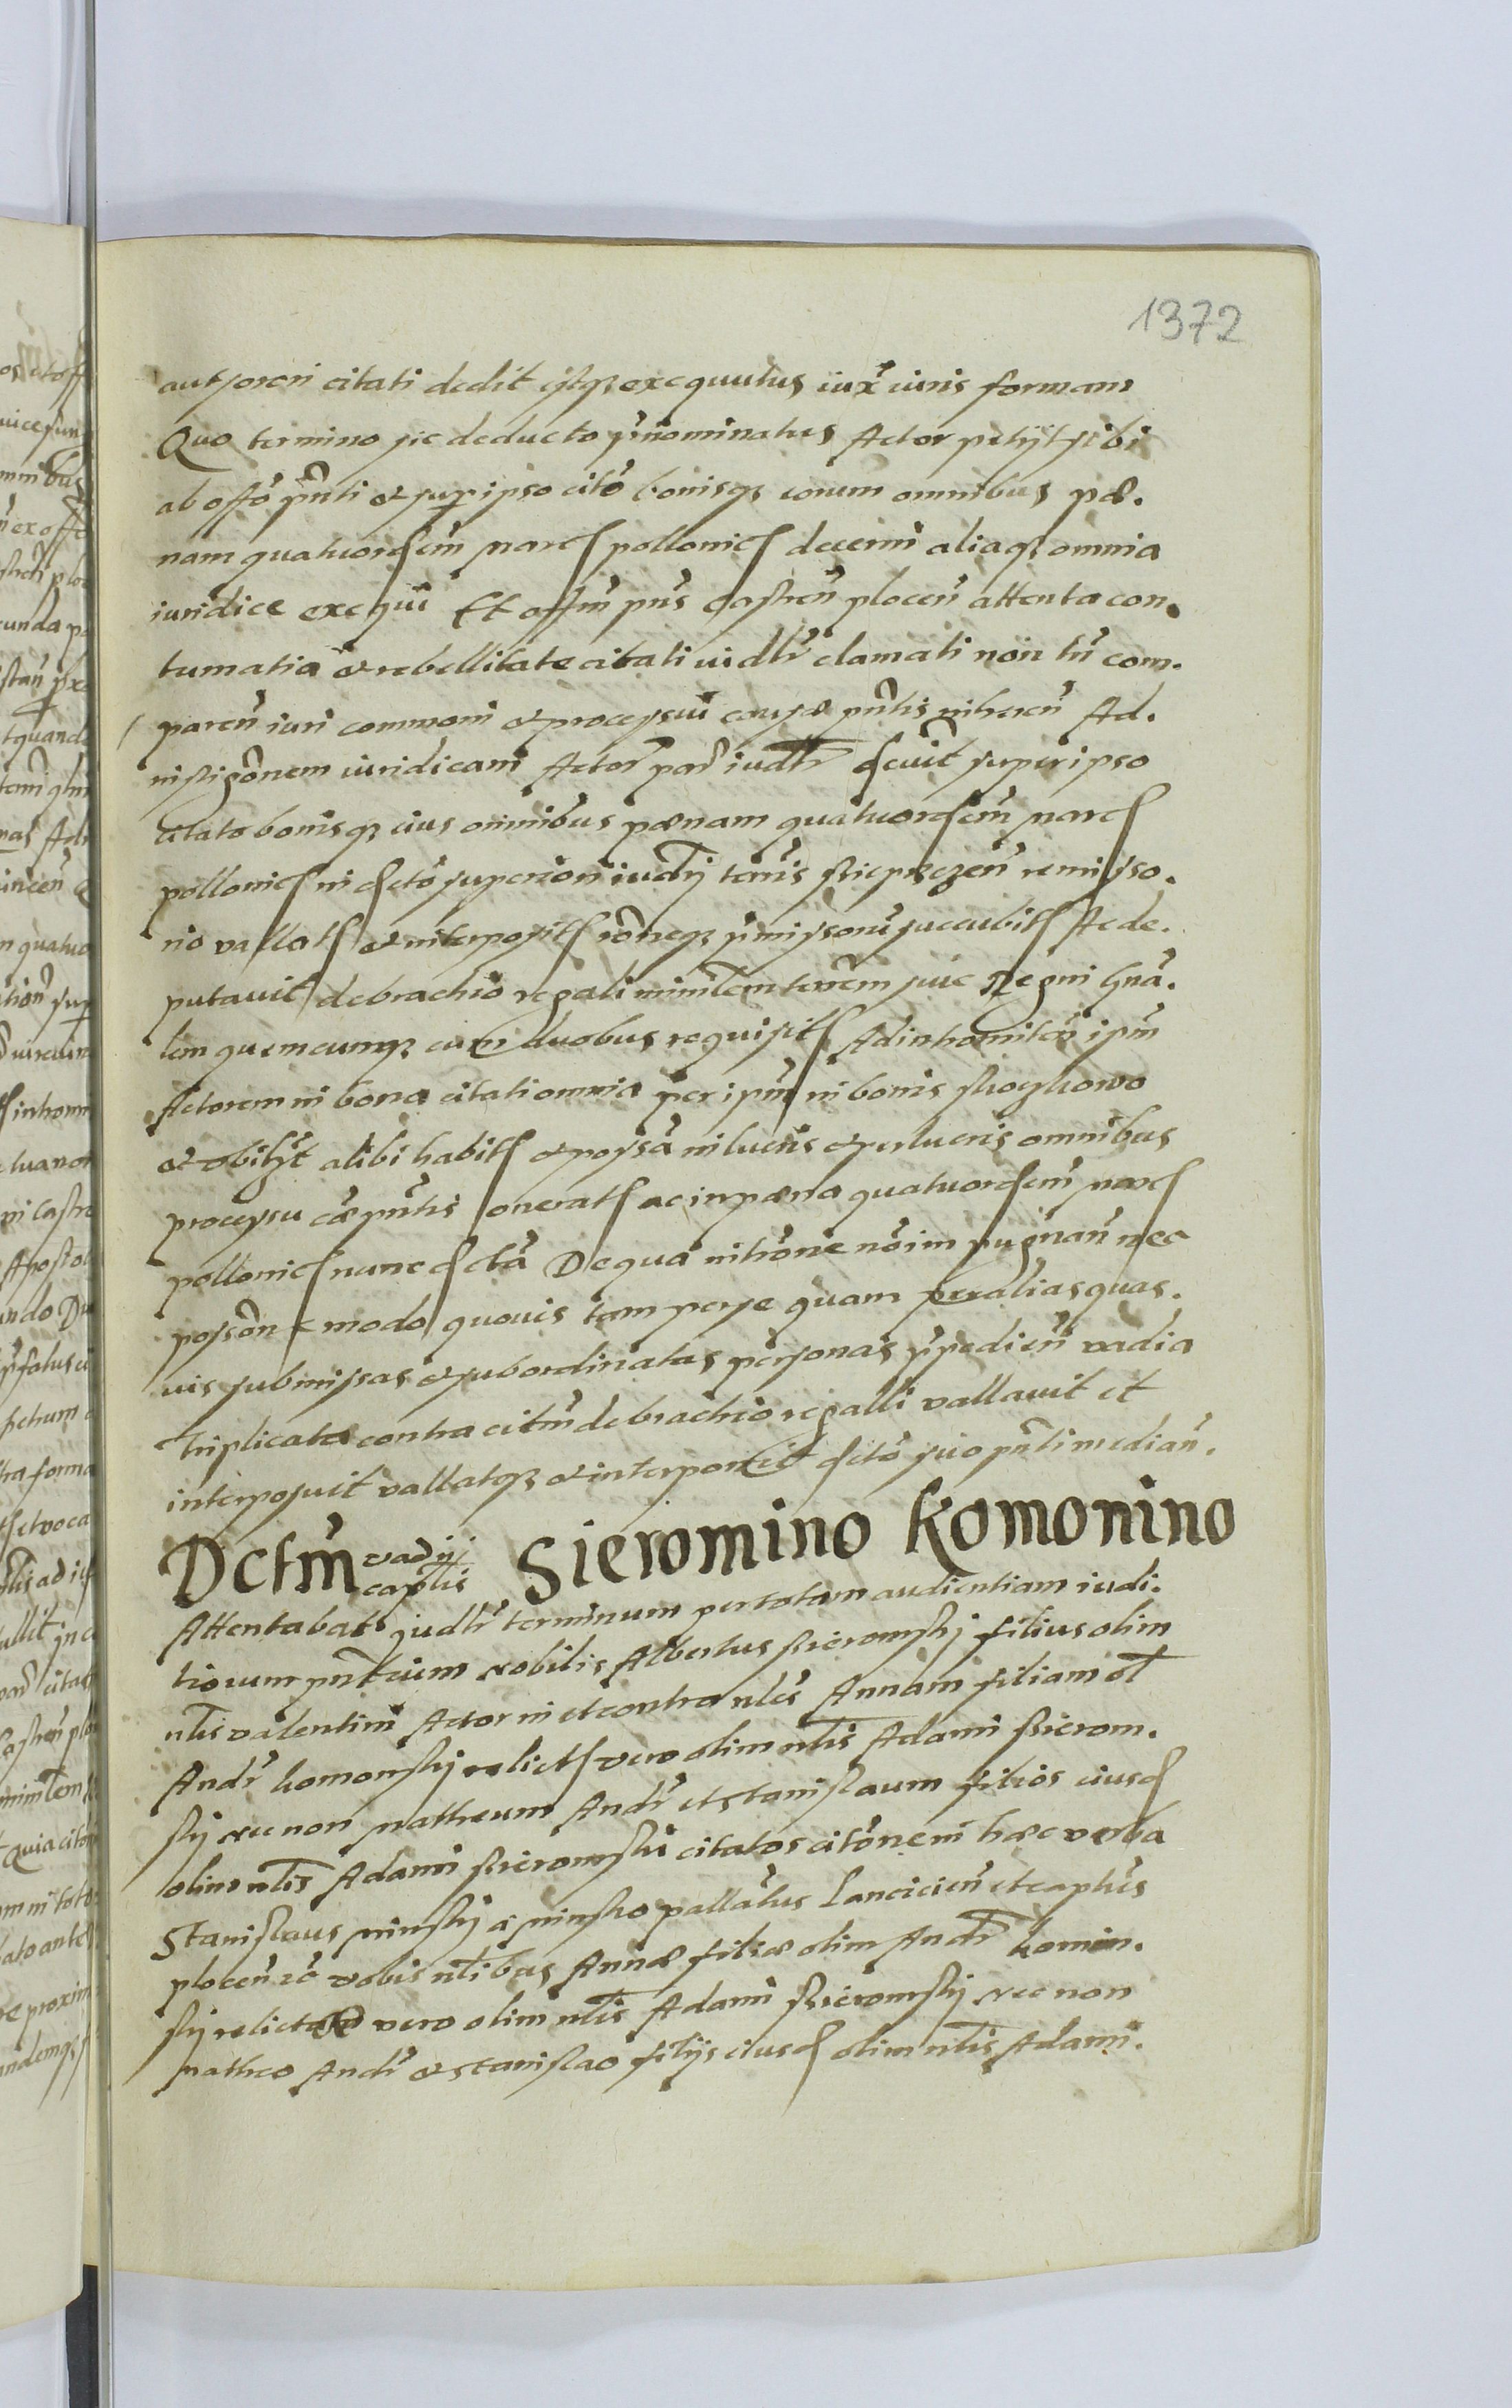 1372
autorem citati dedit estq3 exequutus iux̄ iuris formam
Quo termino sic deducto p̄nominatus Actor petijt sibi
ab off̄o p̄nti et sup̱ ipso cit̄o bonisq3 eorum omnibus pœ.
nam quatuordecim marc̄ pollonic̄ decerni aliaq3 omnia
iuridice exequi Et offm̄ pn̄s Castren̄ plocen̄ attenta con.
tumatia et rebellitate citati iudlr̄ clamati non tn̄ com.
paren̄ iuri commoni et processui causæ pn̄tis inheren̄ Ad.
instigōnem iuridicam Actor̄ par̄ iudlr̄ decr̄uit super ipso
citato bonisq3 eius omnibus pœnam quatuordecim marc̄
pollonic̄ in decto superiori iudicij
rio vallat̄ et interposit̄ rōneq3 p̄missorū succubit̄ Ac de.
putavit de brachio regali minrlem terrem siue Regni gnā.
lem quemcumq3 cum duobus requisit̄ Ad intromitten̄ ipm̄
Actorem in bona citati omnia per ipm̄ in bonis
et obilzt̄ alibi habit̄ et possā in lucris et perlucris omnibus
processu cæ pn̄tis onerat̄ ac in pœna quatuordecim marc̄
pollonic̄ nunc dectā De qua introne nōim pugnan̄ nec
possōn modo quouis tam per se quam per alias quas.
uis submissas et subordinatas personas p̄pedien̄ vadia
Triplicata contra citm̄ de brachio regalli vallauit et
interposuit vallatq3 et interponit dcto suo pn̄ti median̄.
Dctm̄ vadij captlis Sieromino Komonino
Attentabat judlr̄ terminum per totam audientiam iudi.
tiorum pn̄tium Nobilis Albertus Sieromskj filius olim
nlis Valentini Actor in et contra nles Annam filiam ol̄
Andr̄ komonskj relict̄ vero olim nlis Adami Sierom.
skj nec non Matheum Andr̄ et Stanislaum filios eiusd̄
olim nlis Adami Sieromskj citatos citōnem hæc verba
Stanislaus Minskj a Minsko pallatus Lancicien̄ et captus
plocen̄ rc̄ vobis nlibus Annæ filiæ olim Andr̄ komon.
skj relictæ vero olim nlis Adami Sieromskj nec non
Matheo Andr̄ et Stanislao filijs eiusd̄ olim nlis Adami.